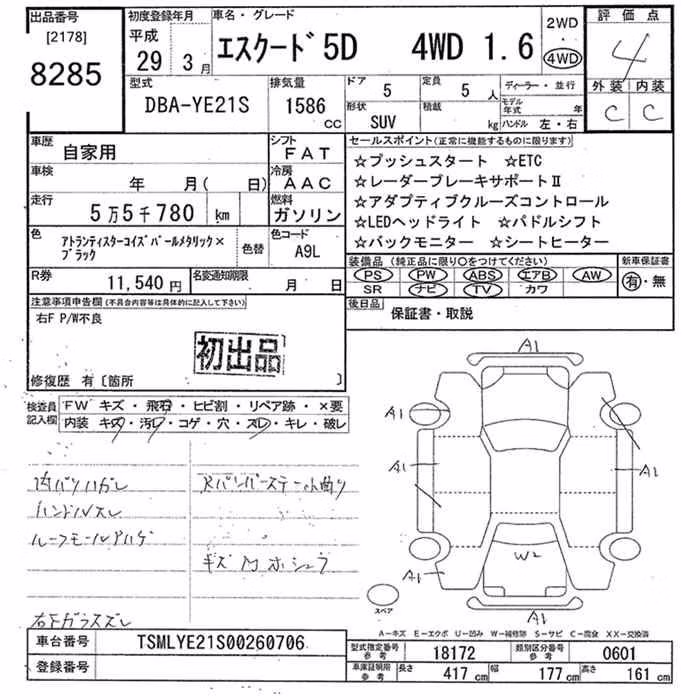 出品番号 [2178] 8285
初度登録年月 平成 29年 3月
車名・グレード エスクード 5D 4WD 1.6
2WD・4WD
評価点 4
外装 C 内装 C
型式 DBA-YE21S
排気量 1586 cc
ドア 5
定員 5 人
形状 SUV
積載 kg
ディーラー・並行
モデル年式 年
ハンドル 左・右
車歴 自家用
シフト FAT
車検 年 月( 日)
冷房 AAC
走行 5万5千780 km
燃料 ガソリン
色 アトランティスターコイズパールメタリック×ブラック
色替
色コード A9L
R券 11,540円
名変通知期限 月 日
セールスポイント(正常に機能するものに限ります)
☆プッシュスタート ☆ETC
☆レーダーブレーキサポートⅡ
☆アダプティブクルーズコントロール
☆LEDヘッドライト ☆パドルシフト
☆バックモニター ☆シートヒーター
装備品(純正品に限り○をつけてください)
PS PW ABS エアB AW
SR ナビ TV カワ
新車保証書
有・無
後日品 保証書・取説
注意事項申告欄(不具合内容等は具体的に記入して下さい)
右F P/W不良
初出品
修復歴 有〔箇所 〕
検査員記入欄
FW キズ・飛石・ヒビ割・リペア跡・×要
内装 キズ・汚レ・コゲ・穴・スレ・キレ・破レ
内バリハガレ
ハンドルスレ
ルーフモールハゲ
右下ガラスズレ
Rバンパーステー曲り
A1
A1
A1
A1
W2
A1
A1
スペア
A-キズ E-エクボ U-凹み W-補修跡 S-サビ C-腐食 XX-交換済
車台番号 TSMLYE21S00260706
登録番号
型式指定番号 参考 18172
類別区分番号 参考 0601
車庫証明用 参考 長さ 417 cm 幅 177 cm 高さ 161 cm